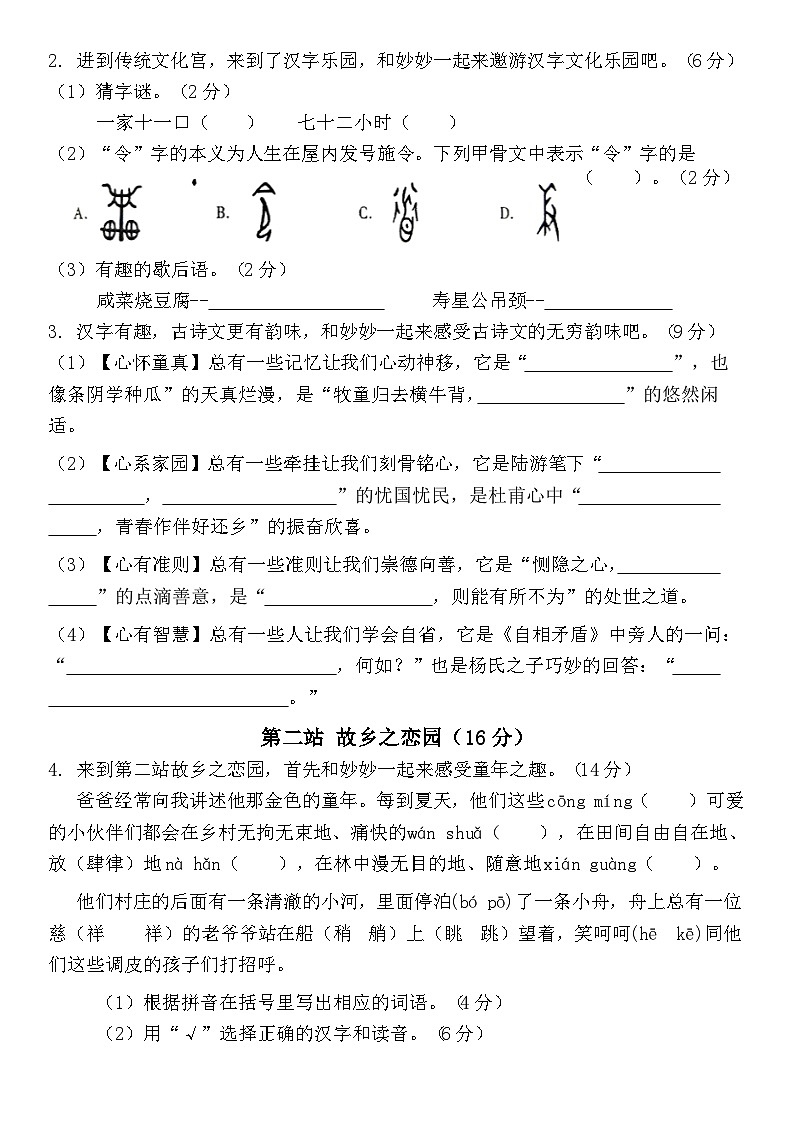 2. 进到传统文化宫，来到了汉字乐园，和妙妙一起来遨游汉字文化乐园吧。（6分）
（1）猜字谜。（2分）
一家十一口（　　） 七十二小时（　　）
（2）“令”字的本义为人生在屋内发号施令。下列甲骨文中表示“令”字的是
（　　）。（2分）
A. B. C. D.
（3）有趣的歇后语。（2分）
咸菜烧豆腐--__________________ 寿星公吊颈--_____________
3. 汉字有趣，古诗文更有韵味，和妙妙一起来感受古诗文的无穷韵味吧。（9分）
（1）【心怀童真】总有一些记忆让我们心动神移，它是“_______________”，也
像条阴学种瓜”的天真烂漫，是“牧童归去横牛背，_______________”的悠然闲
适。
（2）【心系家园】总有一些牵挂让我们刻骨铭心，它是陆游笔下“____________
__________，__________________”的忧国忧民，是杜甫心中“______________
_____，青春作伴好还乡”的振奋欣喜。
（3）【心有准则】总有一些准则让我们崇德向善，它是“恻隐之心，__________
_____”的点滴善意，是“_________________，则能有所不为”的处世之道。
（4）【心有智慧】总有一些人让我们学会自省，它是《自相矛盾》中旁人的一问：
“____________________________，何如？”也是杨氏之子巧妙的回答：“_____
_________________________。”
第二站 故乡之恋园（16分）
4. 来到第二站故乡之恋园，首先和妙妙一起来感受童年之趣。（14分）
爸爸经常向我讲述他那金色的童年。每到夏天，他们这些cōng míng（　　）可爱
的小伙伴们都会在乡村无拘无束地、痛快的wán shuǎ（　　），在田间自由自在地、
放（肆律）地nà hǎn（　　），在林中漫无目的地、随意地xián guàng（　　）。
他们村庄的后面有一条清澈的小河，里面停泊(bó pō)了一条小舟，舟上总有一位
慈（祥　祥）的老爷爷站在船（稍　艄）上（眺　跳）望着，笑呵呵(hē　kē)同他
们这些调皮的孩子们打招呼。
（1）根据拼音在括号里写出相应的词语。（4分）
（2）用“√”选择正确的汉字和读音。（6分）